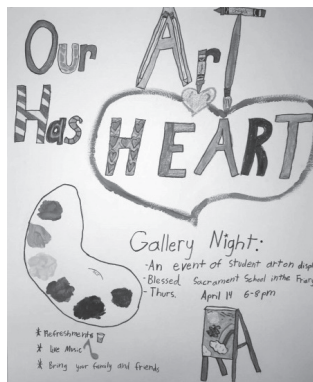 Our Art
Has HEART
Gallery Night:
-An event of student art on disp
-Blessed Sacrament School in the
-Thurs. April 14 6-8pm
* Refreshments
* live Music
* Bring your family and friends